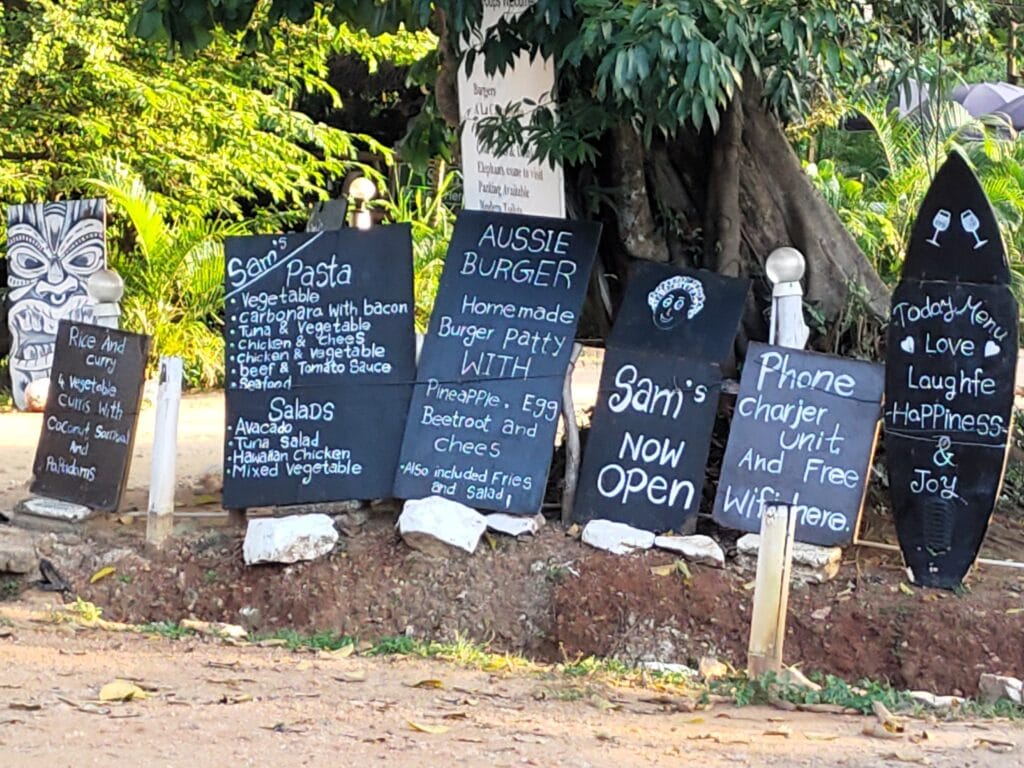 Burgers
Elephants come to visit
Parking Available
Modern Toilets
Rice And
curry
4 Vegetable
curris with
Coconut Sambal
and
Papadams
Sam's
Pasta
• Vegetable
• carbonara with bacon
• Tuna & Vegetable
• Chicken & chees
• chicken & vegetable
• beef & Tomato Sauce
• Seafood
Salads
• Avacado
• Tuna salad
• Hawaiian Chicken
• Mixed Vegetable
AUSSIE
BURGER
Homemade
Burger Patty
WITH
Pineapple, Egg
Beetroot and
chees
• Also included Fries
and salad
Sam's
NOW
OPEN
Phone
charjer
unit
And Free
Wifi here.
Today Menu
Love
Laughfe
-Happiness-
&
Joy